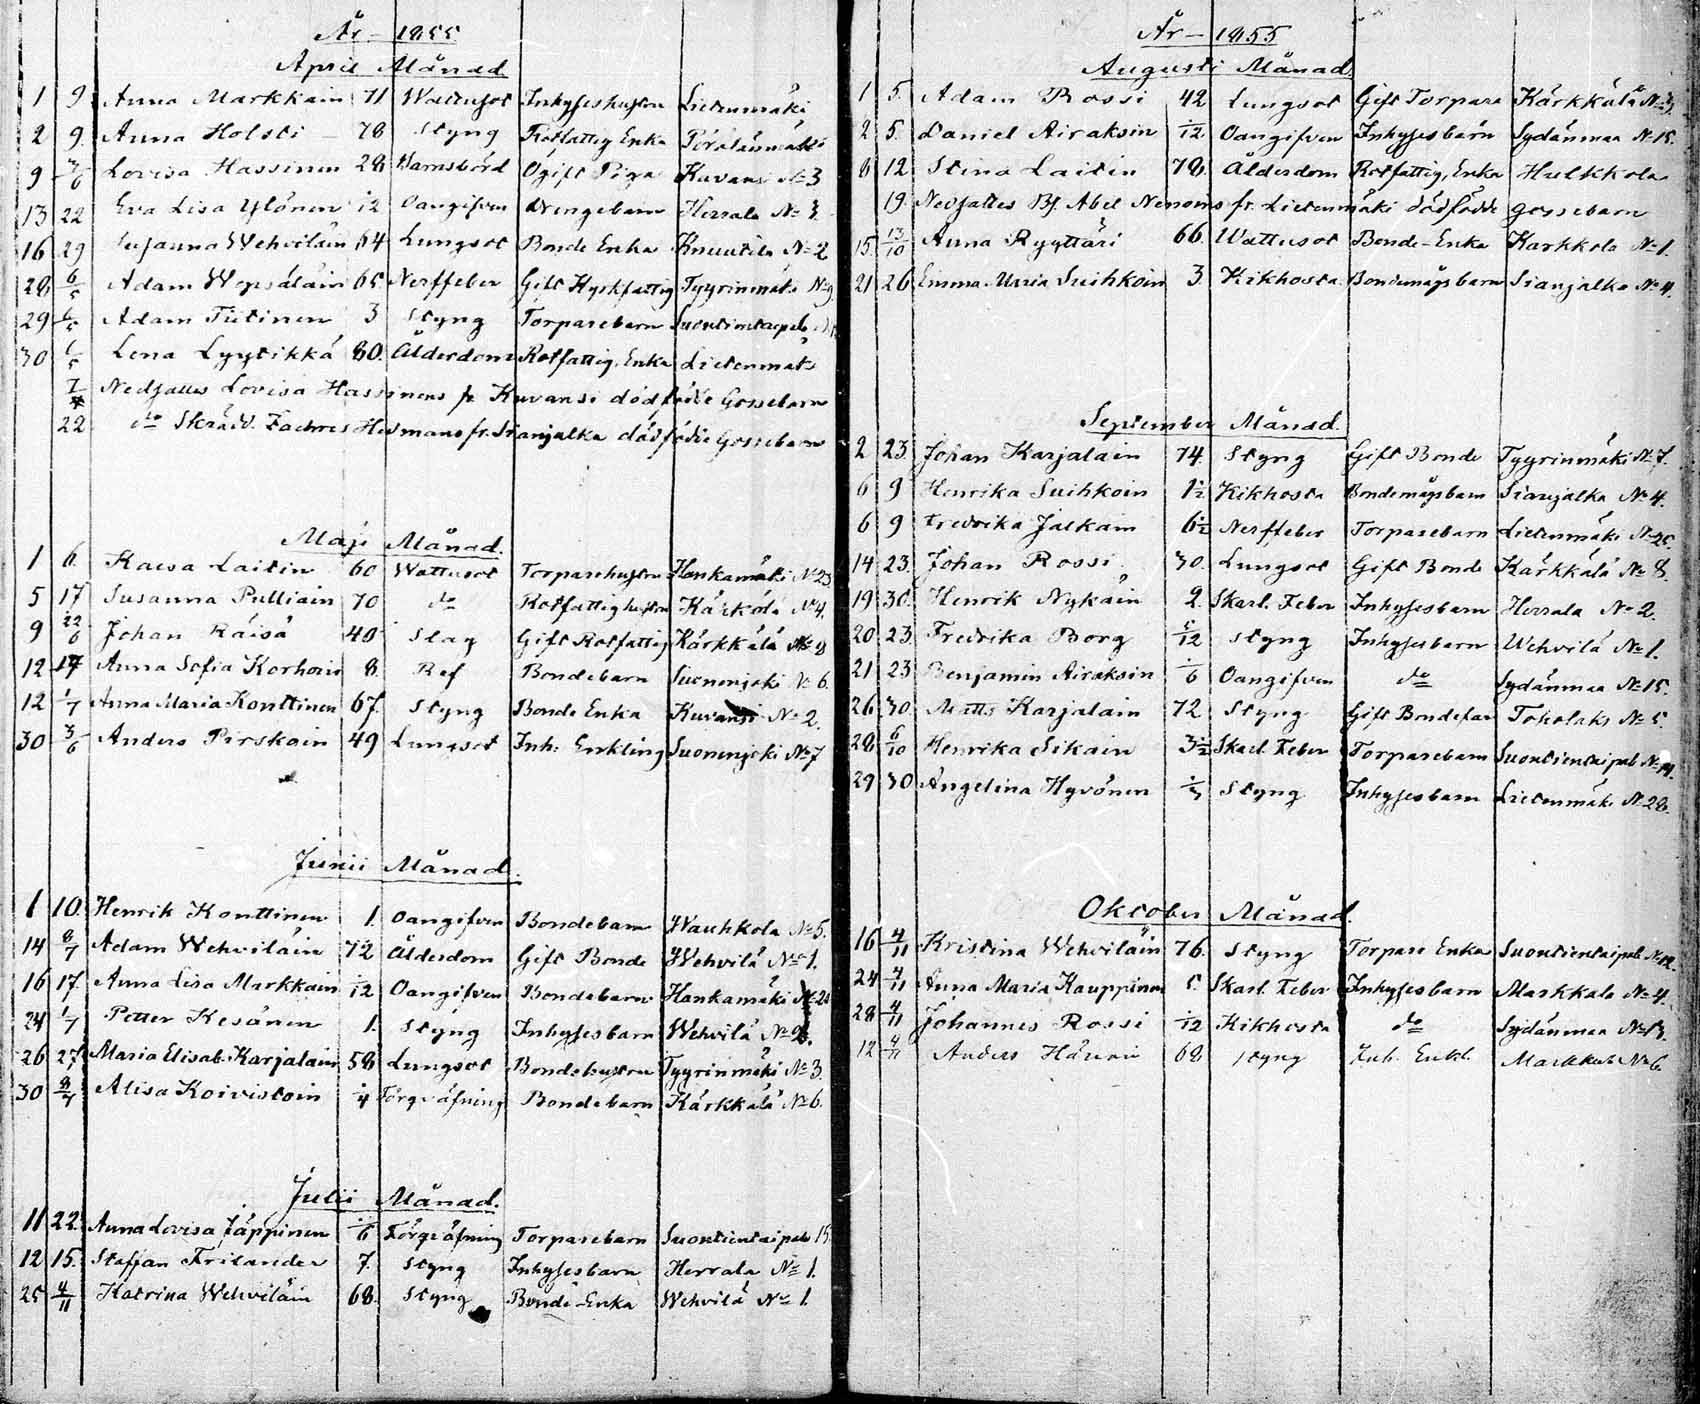 År - 1855
April Månad
1 9. Anna Markkain 71 Wattusot Inhyseshustru Lietenmäki
2 9. Anna Holsti - 78 Styng Rotfattig Enka
9 3/6 Lovisa Hassinen 28 Barnsbörd Ogift Piga Kuvansi No 3
13 22 Eva Lisa Ylönen 1/12 Oangifven Drengebarn Herrala No
16 29 Susanna Wehviläin 64 Lungsot Bonde Enka Knuutila No 2
28 6/5 Adam Wepsäläin 65 Nerffeber Gift Kyrkfattig Tyyrinmäki No 9
29 6/5 Adam Tiitinen 3 Styng Torparebarn Suontientaipale
30 6/5 Lena Lyytikkä 80 Ålderdom Rotfattig Enka Lietenmäki
Nedsattes Lovisa Hassinens fr Kuvansi dödfödde Gossebarn
22 do Skrädd. Hedmans fr. Sianjalka dödfödde Gossebarn
Maji Månad.
1 6. Kaisa Laitin 60 Wattusot Torparehustru Hankamäki No 23
5 17 Susanna Pulliain 70 do Rotfattighustru Kärkölä No 4.
9 22/6 Johan Räisä 40 Slag Gift Rotfattig Kärkkälä No 8
12 17 Anna Sofia Korhoin 8. Ref Bondebarn Suonenjoki No 6.
12 1/7 Anna Maria Konttinen 67. Styng Bonde Enka Kuvansi No 2.
30 3/6 Anders Pirskoin 49 Lungsot Inh: Enkling Suonenjoki No 7
Junii Månad.
1 10. Henrik Konttinen 1. Oangifven Bondebarn Wauhkola No 5.
14 8/7 Adam Wehviläin 72 Ålderdom Gift Bonde Wehvilä No 1.
16 17. Anna Lisa Markkain 1/12 Oangifven Bondebarn Hankamäki
24 1/7 Petter Kesänen 1. Styng Inhysesbarn Wehvilä No 2.
26 27 Maria Elisab. Karjalain 58 Lungsot Bondehustru Tyyrinmäki No 3.
30 8/7 Alisa Koivistoin 1/4 Förqväfning Bondebarn Kärkkälä No 6.
Julii Månad.
11 22. Anna Lovisa Jäppinen 1/6 Förqväfning Torparebarn Suontientaipale 15
12 15. Staffan Frilander 7. Styng Inhysesbarn Herrala No 1.
25 4/11 Katrina Wehviläin 68. Styng Bonde-Enka Wehvilä No 1.
År - 1855
Augusti Månad.
1 5. Adam Rossi 42 Lungsot Gift Torpare Kärkkälä No 9.
2 5. Daniel Airaksin 1/12 Oangifven Inhysesbarn Sydänmaa No 15.
8 12. Stina Laitin 78. Ålderdom Rotfattig, Enka Hulkkola
19. Nedsattes Bf. Abel Nenoins fr. Lietenmäki dödfödde gossebarn
15 13/10 Anna Ryyttäri 66. Wattusot Bonde-Enka Karkkola No 1.
21 26 Emma Maria Suihkoin 3. Kikhosta Bondemågsbarn Sianjalka No 4.
September Månad.
2 23. Johan Karjalain 74. Styng Gift Bonde Tyyrinmäki No 7.
6 9 Henrika Suihkoin 1 1/2 Kikhosta Bondemågsbarn Sianjalka No 4.
6 9 Fredrika Jalkain 6 1/2 Nerffeber Torparebarn Lietenmäki No 20.
14 23. Johan Rossi. 30. Lungsot Gift Bonde Kärkkälä No 8.
19 30. Henrik Nykäin 2. Skarl. Feber Inhysesbarn Herrala No 2.
20 23. Fredrika Borg 5/12 Styng Inhysesbarn Wehvilä No 1.
21 23 Benjamin Airaksin 1/6 Oangifven do Sydänmaa No 15.
26 30 Matts Karjalain 72 Styng Gift Bondefar Toholaks No 5.
28 6/10 Henrika Sikain 3 1/2 Skarl. Feber Torparebarn Suontientaipale No 14.
29 30 Angelina Hyvönen Styng Inhysesbarn Lietenmäki No 28.
Oktober Månad.
16 4/11 Kristina Wehviläin 76. Styng Torpare Enka Suontientaipale No 12.
24 4/11 Anna Maria Kauppinen 5. Skarl. Feber Inhysesbarn Markkala No 4.
28 4/11 Johannes Rossi 1/12 Kikhosta do Sydänmaa No 13.
12 4/11 Anders 68. Styng Inh. Enkl. Markkala No 6.